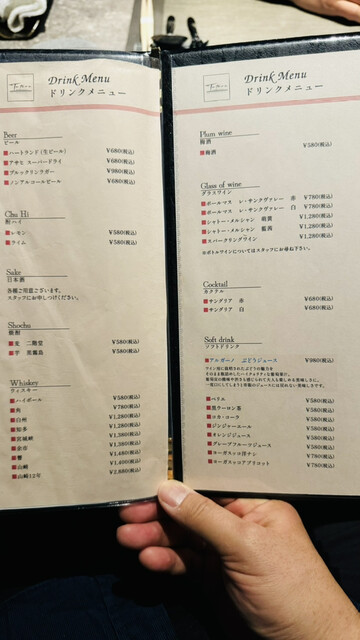 Drink Menu
ドリンクメニュー
Beer
ビール
ハートランド (生ビール) ¥680(税込)
アサヒ スーパードライ ¥680(税込)
ブルックリンラガー ¥980(税込)
ノンアルコールビール ¥680(税込)
Chu Hi
酎ハイ
レモン ¥580(税込)
ライム ¥580(税込)
Sake
日本酒
各種ご用意ございます。
スタッフにお申しつけください。
Shochu
焼酎
麦 二階堂 ¥580(税込)
芋 黒霧島 ¥580(税込)
Whiskey
ウィスキー
ハイボール ¥580(税込)
角 ¥780(税込)
白州 ¥1,280(税込)
知多 ¥1,280(税込)
宮城峡 ¥1,380(税込)
余市 ¥1,380(税込)
響 ¥1,480(税込)
山崎 ¥1,400(税込)
山崎12年 ¥2,880(税込)
Drink Menu
ドリンクメニュー
Plum wine
梅酒
梅酒 ¥580(税込)
Glass of wine
グラスワイン
ポールマス レ・サンクヴァレー 赤 ¥780(税込)
ポールマス レ・サンクヴァレー 白 ¥780(税込)
シャトー・メルシャン 萌黄 ¥1,280(税込)
シャトー・メルシャン 藍茜 ¥1,280(税込)
スパークリングワイン ¥1,280(税込)
※ボトルワインについてはスタッフにお尋ね下さい。
Cocktail
カクテル
サングリア 赤 ¥680(税込)
サングリア 白 ¥680(税込)
Soft drink
ソフトドリンク
アルガーノ ぶどうジュース ¥980(税込)
ペリエ ¥580(税込)
黒ウーロン茶 ¥580(税込)
コカ・コーラ ¥580(税込)
ジンジャーエール ¥580(税込)
オレンジジュース ¥580(税込)
グレープフルーツジュース ¥580(税込)
ヨーガスっ洋ナシ ¥780(税込)
ヨーガスっアプリコット ¥780(税込)